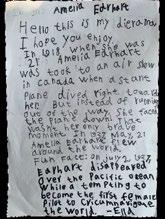 Amelia Earhart
Hello this is my dierama
I hope you enjoy
In 1918, when she was
21 Amelia Earhart
was took to an air show
in canada when a stant
Plane dived right towards
her. But instead of running
out of the way. She faced
the plane down.
Wasnt her only brave
moment in may 21
Amelia Earhare flew
around the world.
Fun fact: on july 2, 1937
Earhart disapeered
over the Pacific ocean
While a tempting to
become the first female
Pilot to Cricumnavigate
the world. -Ella